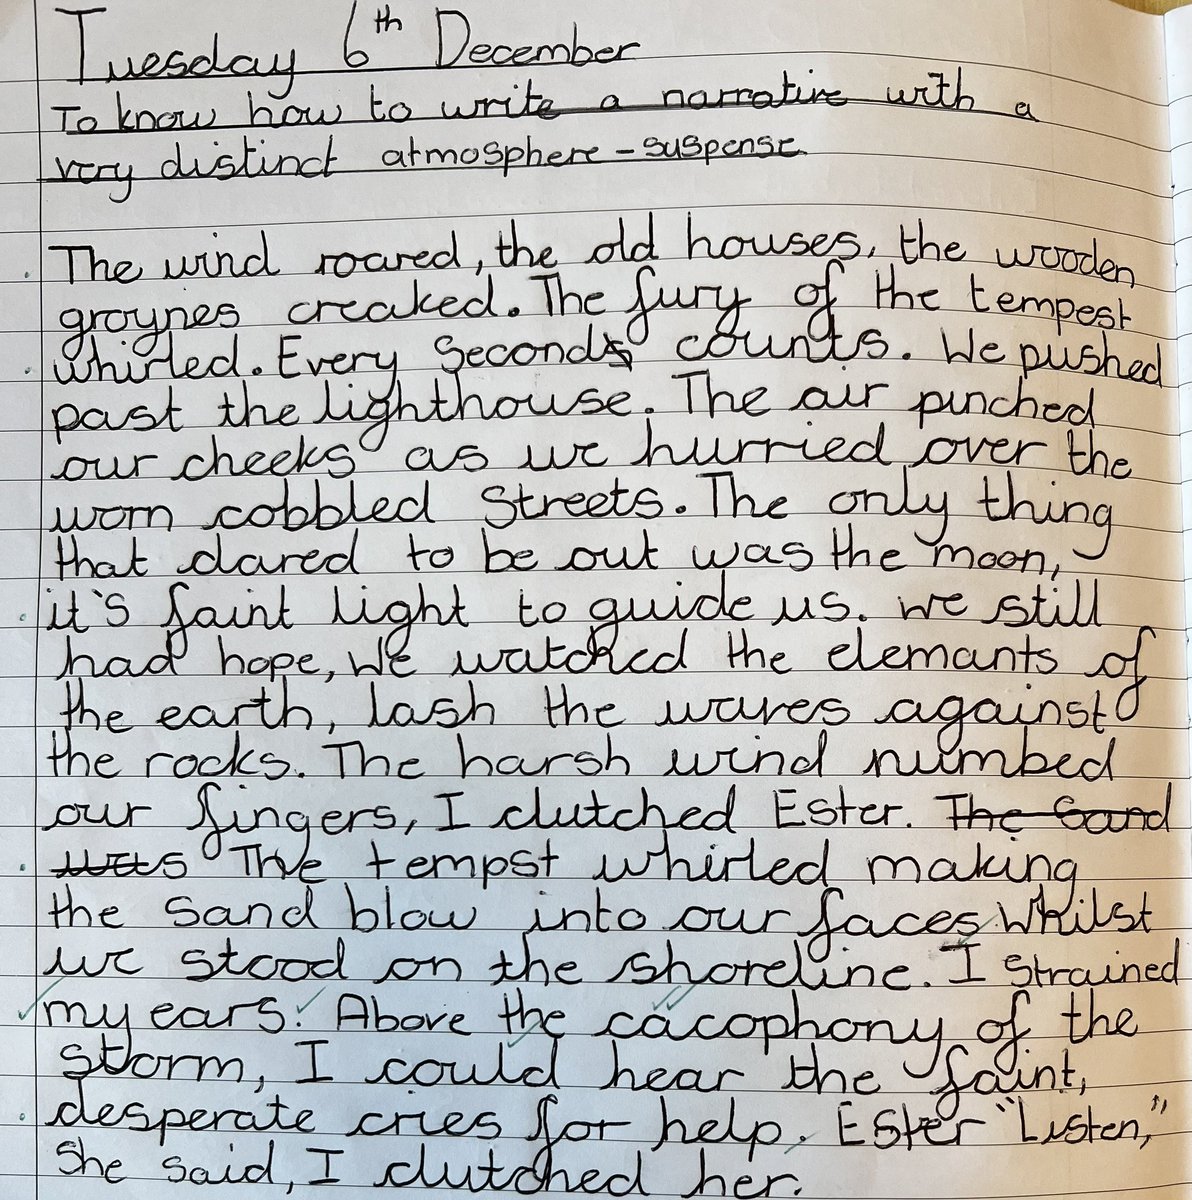 Tuesday 6th December
To know how to write a narrative with a
very distinct atmosphere - suspense.
The wind roared, the old houses, the wooden
groynes creaked. The fury of the tempest
whirled. Every second counts. We pushed
past the lighthouse. The air pinched
our cheeks as we hurried over the
worn cobbled streets. The only thing
that dared to be out was the moon,
it's faint light to guide us. we still
had hope, We watched the elemants of
the earth, lash the waves against
the rocks. The harsh wind numbed
our fingers, I clutched Ester. The Sand
The tempst whirled making
the sand blow into our faces whilst
we stood on the shoreline. I strained
my ears. Above the cacophony of the
storm, I could hear the faint,
desperate cries for help. Ester "Listen,"
She said, I clutched her.